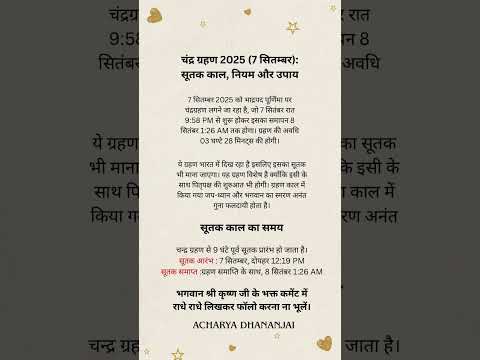 चंद्र ग्रहण 2025 (7 सितम्बर):
सूतक काल, नियम और उपाय
7 सितम्बर 2025 को भाद्रपद पूर्णिमा पर
चंद्रग्रहण लगने जा रहा है, जो 7 सितंबर रात
9:58 PM से शुरू होकर इसका समापन 8
सितंबर 1:26 AM तक होगा। ग्रहण की अवधि
03 घण्टे 28 मिनट्स की होगी।
ये ग्रहण भारत में दिख रहा है इसलिए इसका सूतक
भी माना जाएगा। यह ग्रहण विशेष है क्योंकि इसी के
साथ पितृपक्ष की शुरुआत भी होगी। ग्रहण काल में
किया गया जप-ध्यान और भगवान का स्मरण अनंत
गुना फलदायी होता है।
सूतक काल का समय
चन्द्र ग्रहण से 9 घंटे पूर्व सूतक प्रारंभ हो जाता है।
सूतक आरंभ : 7 सितम्बर, दोपहर 12:19 PM
सूतक समाप्त :ग्रहण समाप्ति के साथ, 8 सितंबर 1:26 AM
भगवान श्री कृष्ण जी के भक्त कमेंट में
राधे राधे लिखकर फॉलो करना ना भूलें।
ACHARYA DHANANJAI